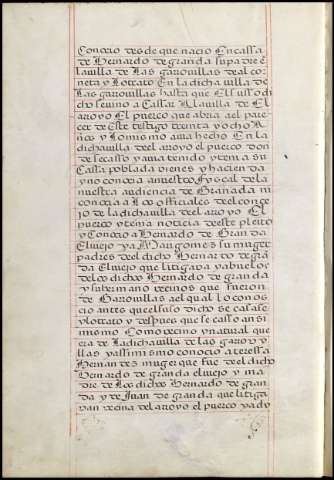 Conocio desde que nacio En cassa
de Bernardo de granda su padre E
la uilla de Las garrouillas de al co
neta y Lo trato En la dicha uilla de
Las garrouillas hasta que El suso di
cho se uino a Cassar A la uilla de El
arroyo El puerco que abria a el pare
cer de Este testigo treinta y ocho A
ños y Lo mismo auia hecho En la
dicha uilla de el arroyo el puerco don
de se casso y auia tenido y tenia su
Cassa poblada vienes y hacienda
y no conocia a nuestro fyscal de la
nuestra audiencia de Granada ni
conocia a Los officiales de el conce
jo de la dicha uilla de el arroyo El
puerco y tenia noticia de este pleito
y Conocio a Bernardo de Granda
El uiejo y a Mari gomez su muger
padres de el dicho Bernardo de gran
da El uiejo que litigaua y abuelos
de los dichos Bernardo de granda
y su hermano vecinos que fueron
de Garrouillas a el qual lo conos
cio antes que el suso dicho se casase
y lo trato y despues que se casso ansi
mismo Como vecino y natural que
era de La dicha uilla de las garroui
llas y assimismo conocio a teressa
Hernandez muger que fue de el dicho
Bernardo de granda el uiejo y ma
dre de Los dichos Bernardo de gran
da y de Juan de granda que litiga
van vecina del arroyo el puerco y a du